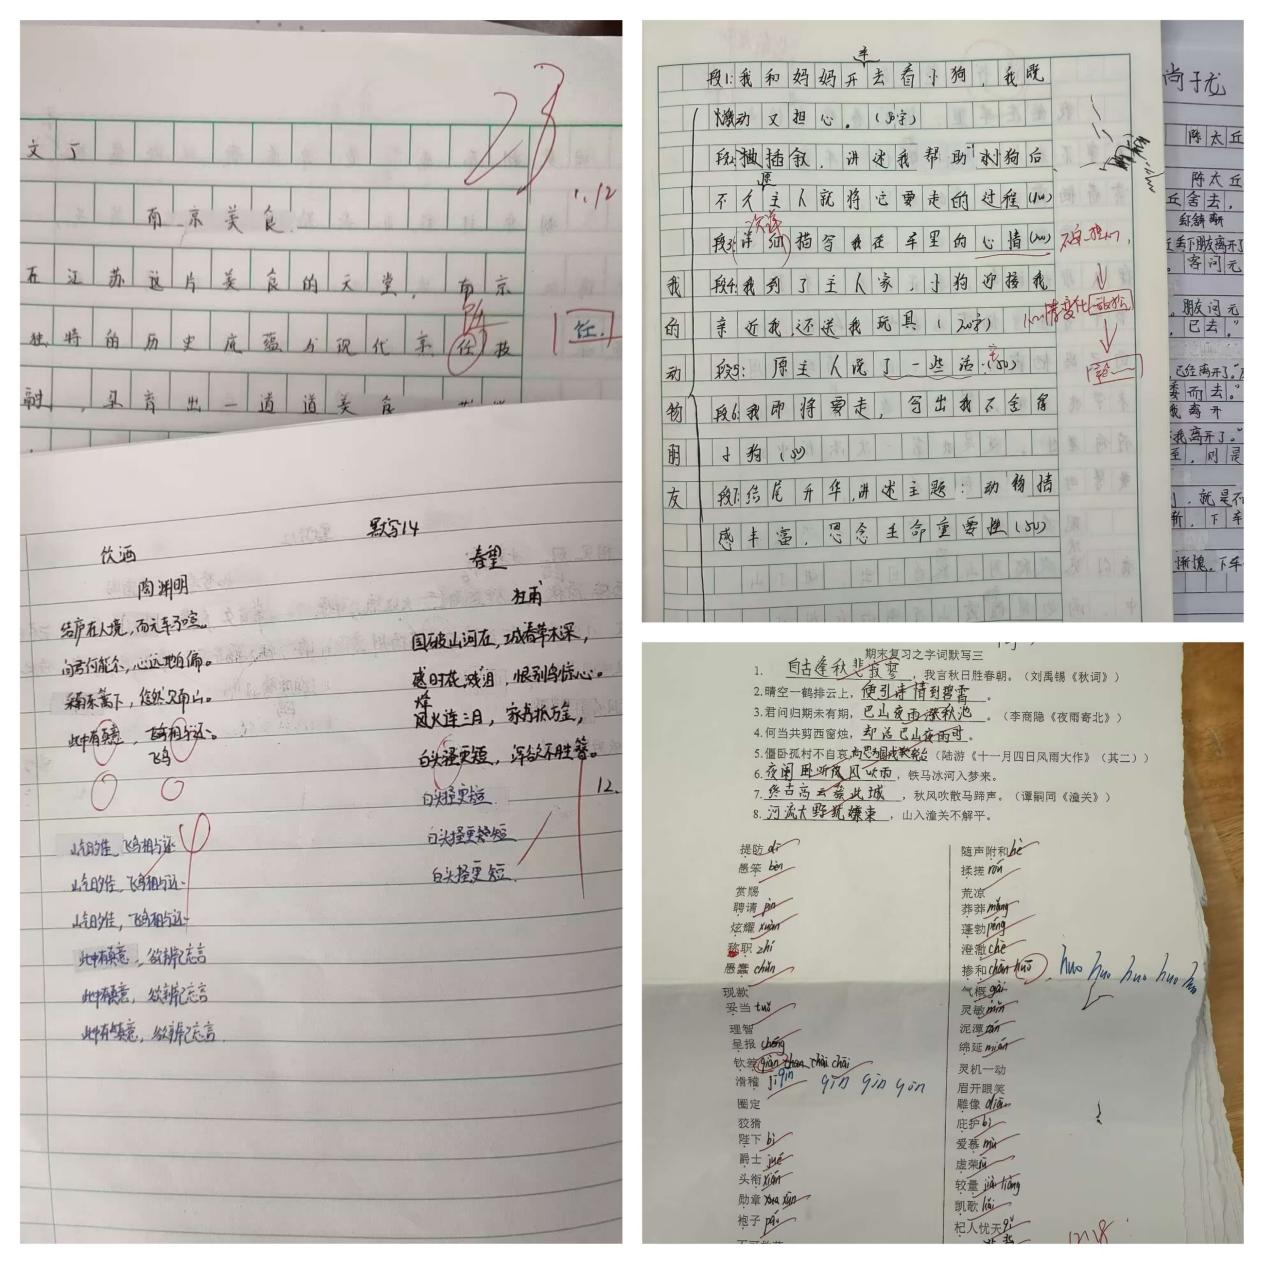 28
1.12
文丁
南京美食
在江苏这片美食的天堂，南京
独特的历史底蕴与现代
任
融，孕育出一道道美食
默写14
饮酒
陶渊明
结庐在人境，而无车马喧。
问君何能尔，心远地自偏。
采菊东篱下，悠然见南山。
此中有真意，飞鸟相与还。
飞鸟
山气日夕佳，飞鸟相与还
山气日夕佳，飞鸟相与还
山气日夕佳，飞鸟相与还
此中有真意，欲辨已忘言
此中有真意，欲辨已忘言
此中有真意，欲辨已忘言
春望
杜甫
国破山河在，城春草木深，
感时花溅泪，恨别鸟惊心。
烽
风火连三月，家书抵万金，
白头搔更短，浑欲不胜簪。
白头搔更短
白头搔更短
白头搔更短
12.
车
段1：我和妈妈开去看小狗，我既
激动又担心。（50字）
段2：插叙，讲述我帮助
不久主人就将它要走的过程
段3：详细描写我在车里的心情
我的动物朋友
段4：我到了主人家，小狗迎接我
亲近我，还送我玩具（20字）
心情变化
段5：原主人说了一些话：（50）
段6：我即将要走，写出我不舍得
小狗（50）
段7：结尾升华，讲述主题：动物情
感丰富，思念生命重要性（50）
陈太丘
陈太丘
丘舍去，
客问元
朋友问元
已去。”
委而去。”
我离开
我离开了。”
至，则是
惭愧，下车
期末复习之字词默写三
1. 自古逢秋悲寂寥，我言秋日胜春朝。（刘禹锡《秋词》）
2.晴空一鹤排云上，便引诗情到碧霄。
3.君问归期未有期，巴山夜雨涨秋池。（李商隐《夜雨寄北》）
4.何当共剪西窗烛，却话巴山夜雨时。
5.僵卧孤村不自哀，尚思为国戍轮台（陆游《十一月四日风雨大作》（其二））
6.夜阑卧听风吹雨，铁马冰河入梦来。
7.终古高云簇此城，秋风吹散马蹄声。（谭嗣同《潼关》）
8.河流大野犹嫌束，山入潼关不解平。
提防 dī
愚笨 bèn
赏赐
聘请 pìn
炫耀 xuàn
称职 zhí
愚蠢 chǔn
现款
妥当 tuǒ
理智
呈报 chéng
钦差 chāi chāi
滑稽 jī qīn qīn qīn
圈定
狡猾
陛下 bì
爵士 jué
头衔 xián
勋章 xūn
袍子 páo
随声附和 hè
揉搓 róu
荒凉
莽莽 mǎng
蓬勃 péng
澄澈 chè
掺和 chān huō huo huo huo huo
气概 gài
灵敏 mǐn
泥潭 tán
绵延 mián
灵机一动
眉开眼笑
雕像 diāo
庇护 bì
爱慕 mù
虚荣 xū
较量 jiào liàng
凯歌 kǎi
杞人忧天 qǐ